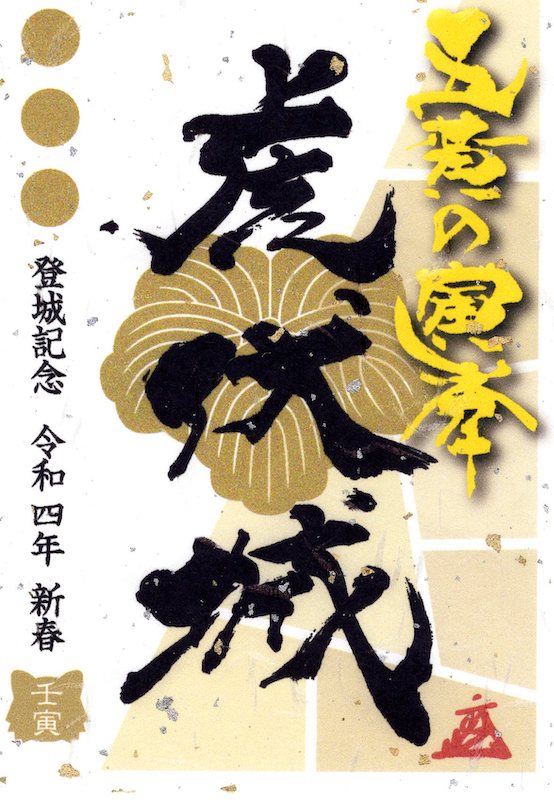 五黄の寅年
虎伏城
登城記念 令和四年 新春
壬寅